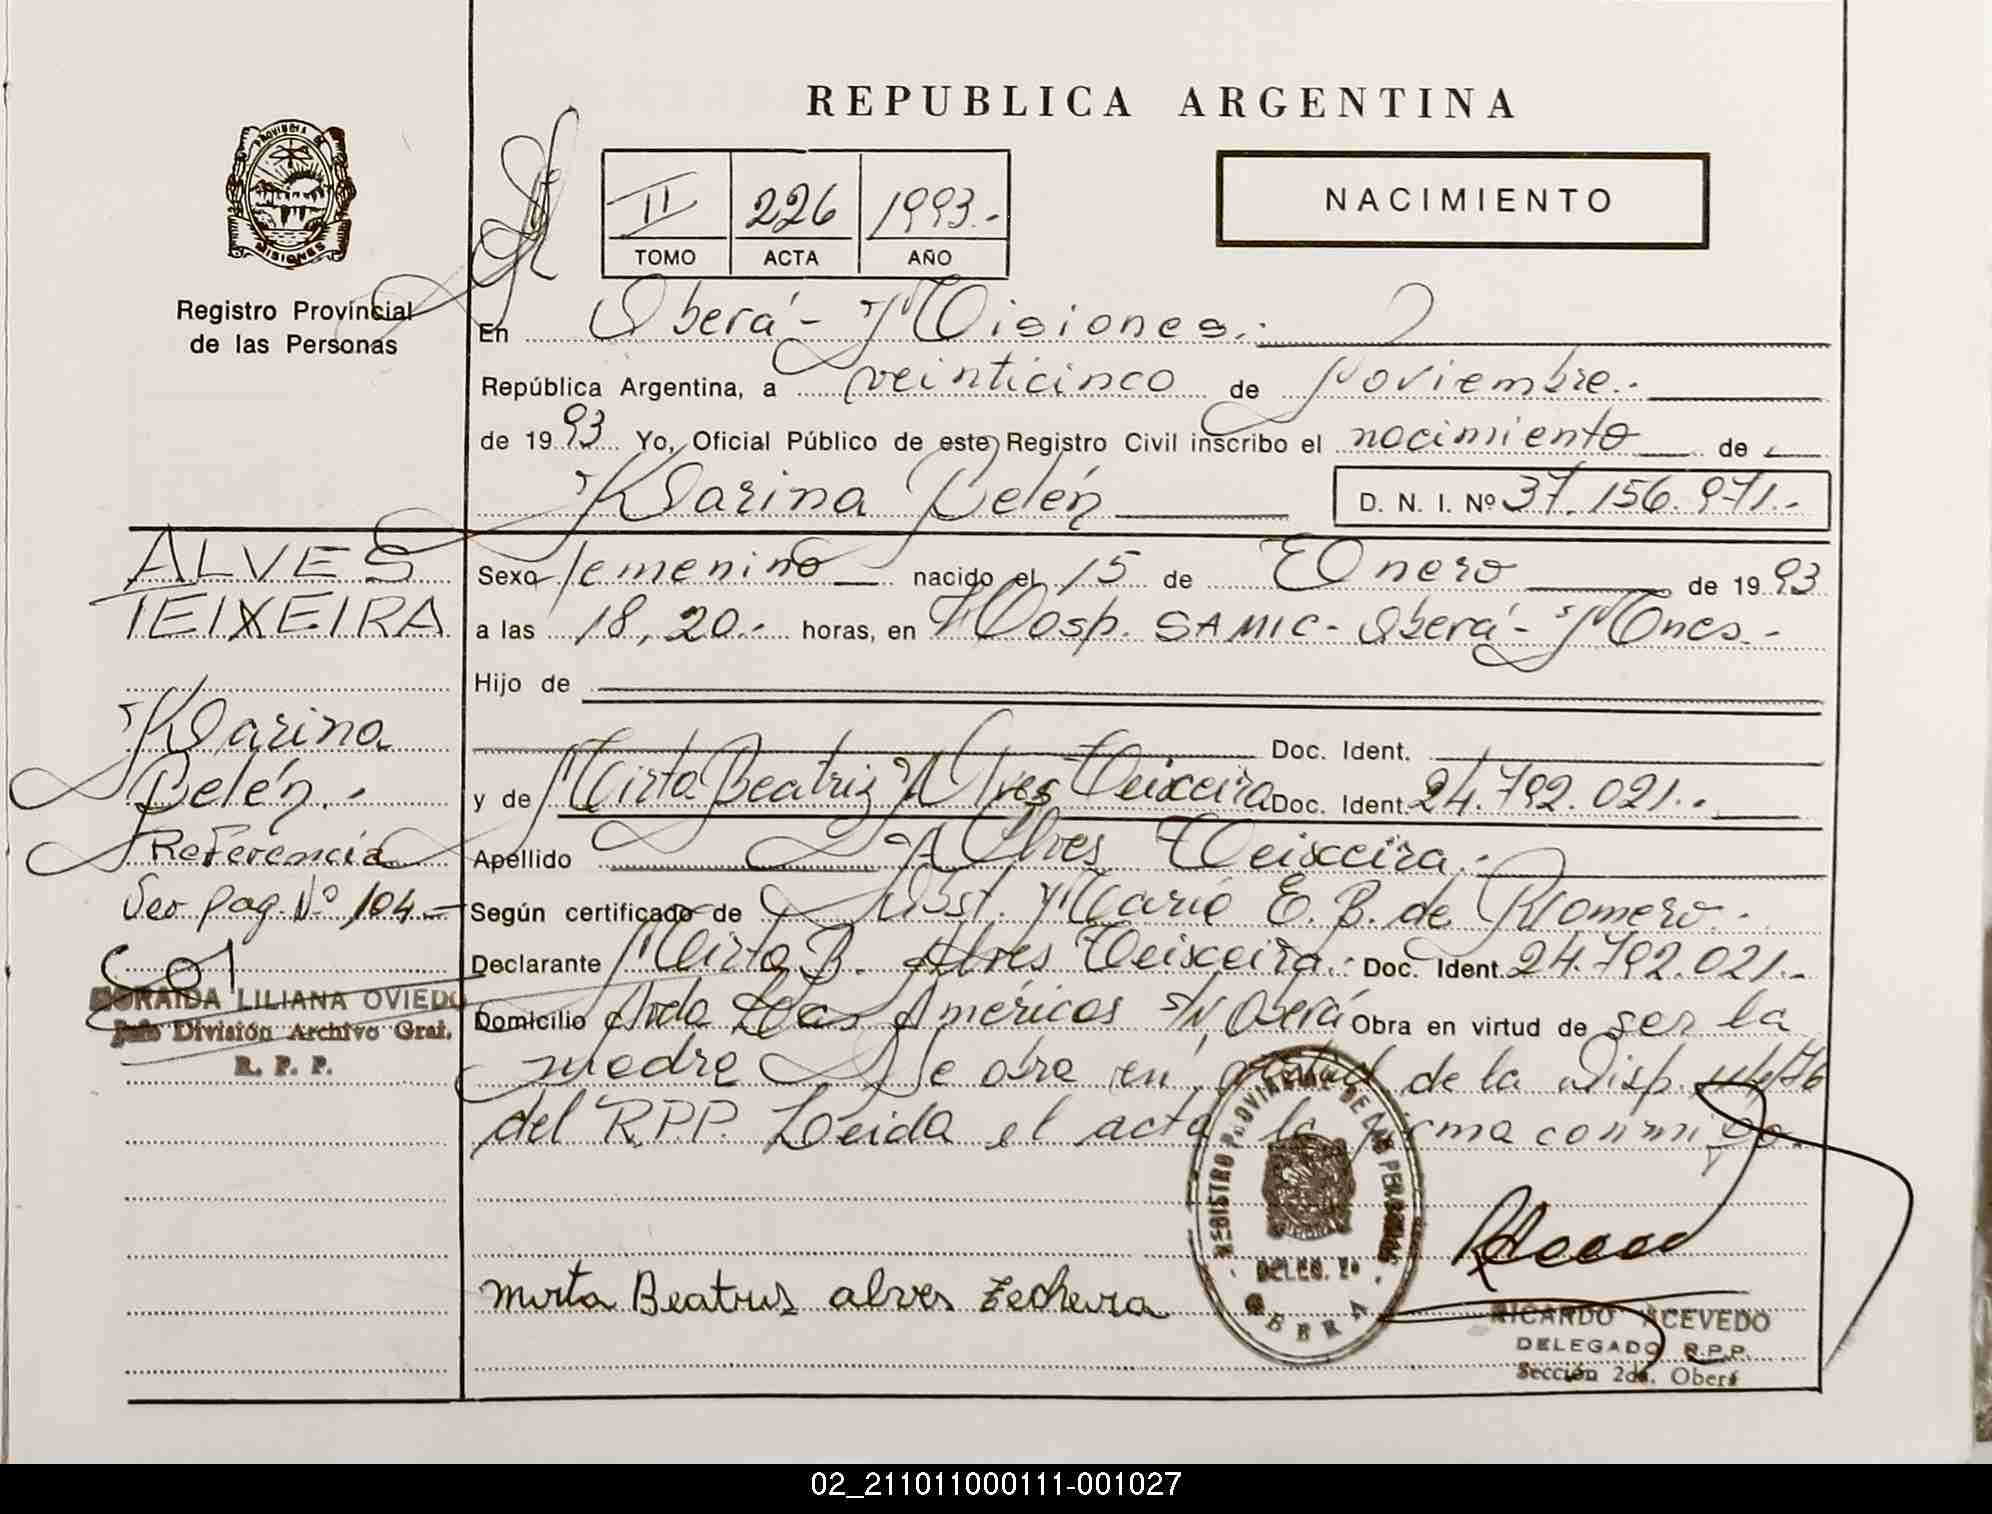 REPUBLICA ARGENTINA
PROVINCIA DE
MISIONES
Registro Provincial
de las Personas
II 226 1993.-
TOMO ACTA AÑO
NACIMIENTO
En Oberá - Misiones.-
República Argentina, a veinticinco de Noviembre.-
de 1993 Yo, Oficial Público de este Registro Civil inscribo el nacimiento de
Karina Belén D. N. I. Nº 37.156.971.-
ALVES
TEIXEIRA
Karina
Belén.-
Referencia
Ver pag. Nº 104.-
ZORAIDA LILIANA OVIEDO
Jefe División Archivo Gral.
R. P. P.
Sexo femenino nacido el 15 de Enero de 1993
a las 18,20.- horas, en Hosp. SAMIC - Oberá - Mnes.-
Hijo de
Doc. Ident.
y de Mirta Beatriz Alves Teixeira Doc. Ident. 24.792.021.-
Apellido Alves Teixeira.-
Según certificado de Obst. María E. B. de Romero.
Declarante Mirta B. Alves Teixeira.- Doc. Ident. 24.792.021.-
Domicilio Avda Las Américas S/N Oberá Obra en virtud de ser la
madre Se obra en virtud de la Disp.
del R.P.P. Leida el acta la firma conmigo.
REGISTRO PROVINCIAL DE LAS PERSONAS
DELEG. 2ª
OBERA
Mirta Beatris alves
RICARDO ACEVEDO
DELEGADO R.P.P.
Sección 2da. Oberá
02_211011000111-001027